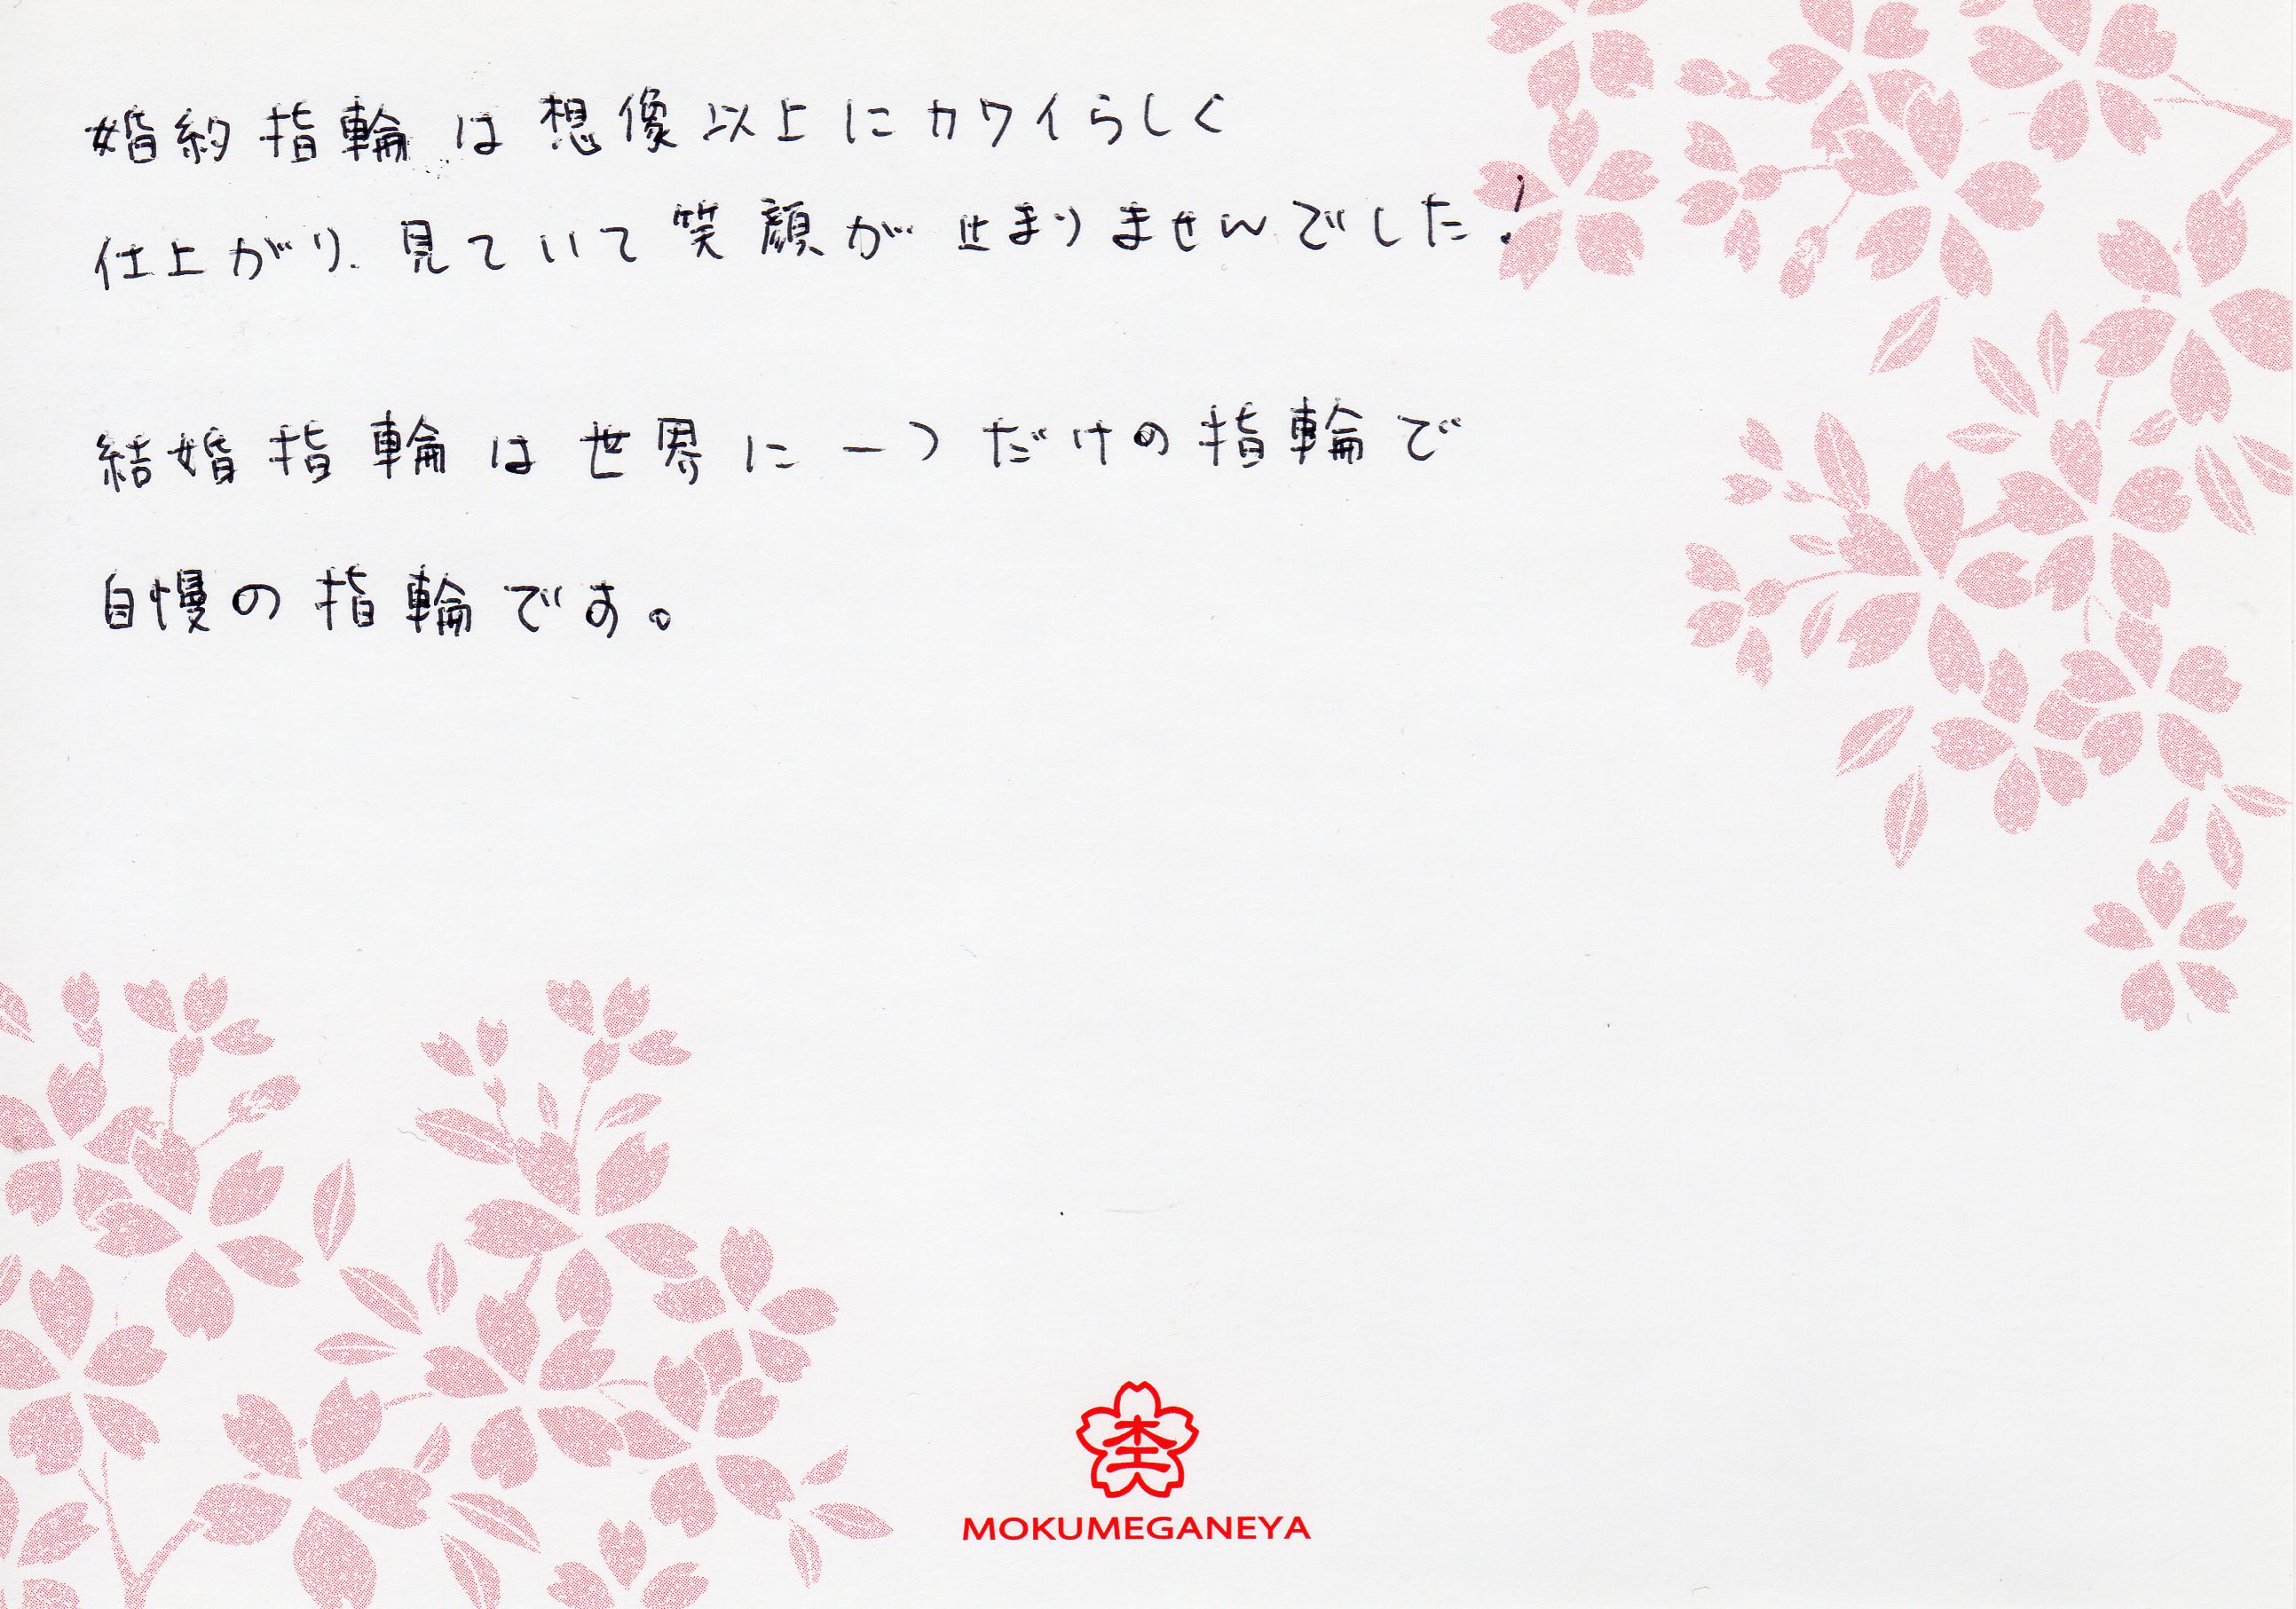 婚約指輪は想像以上にカワイらしく
仕上がり、見ていて笑顔が止まりませんでした!
結婚指輪は世界に一つだけの指輪で
自慢の指輪です。
MOKUMEGANEYA